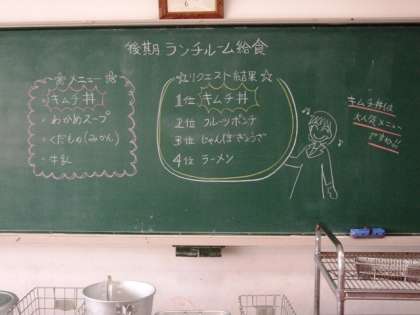 後期 ランチルーム給食
※メニュー※
・キムチ丼
・わかめスープ
・くだもの(みかん)
・牛乳
☆リクエスト結果☆
1位 キムチ丼
2位 フルーツポンチ
3位 じゃんぼぎょうざ
4位 ラーメン
キムチ丼は
大人気メニュー
ですね!!